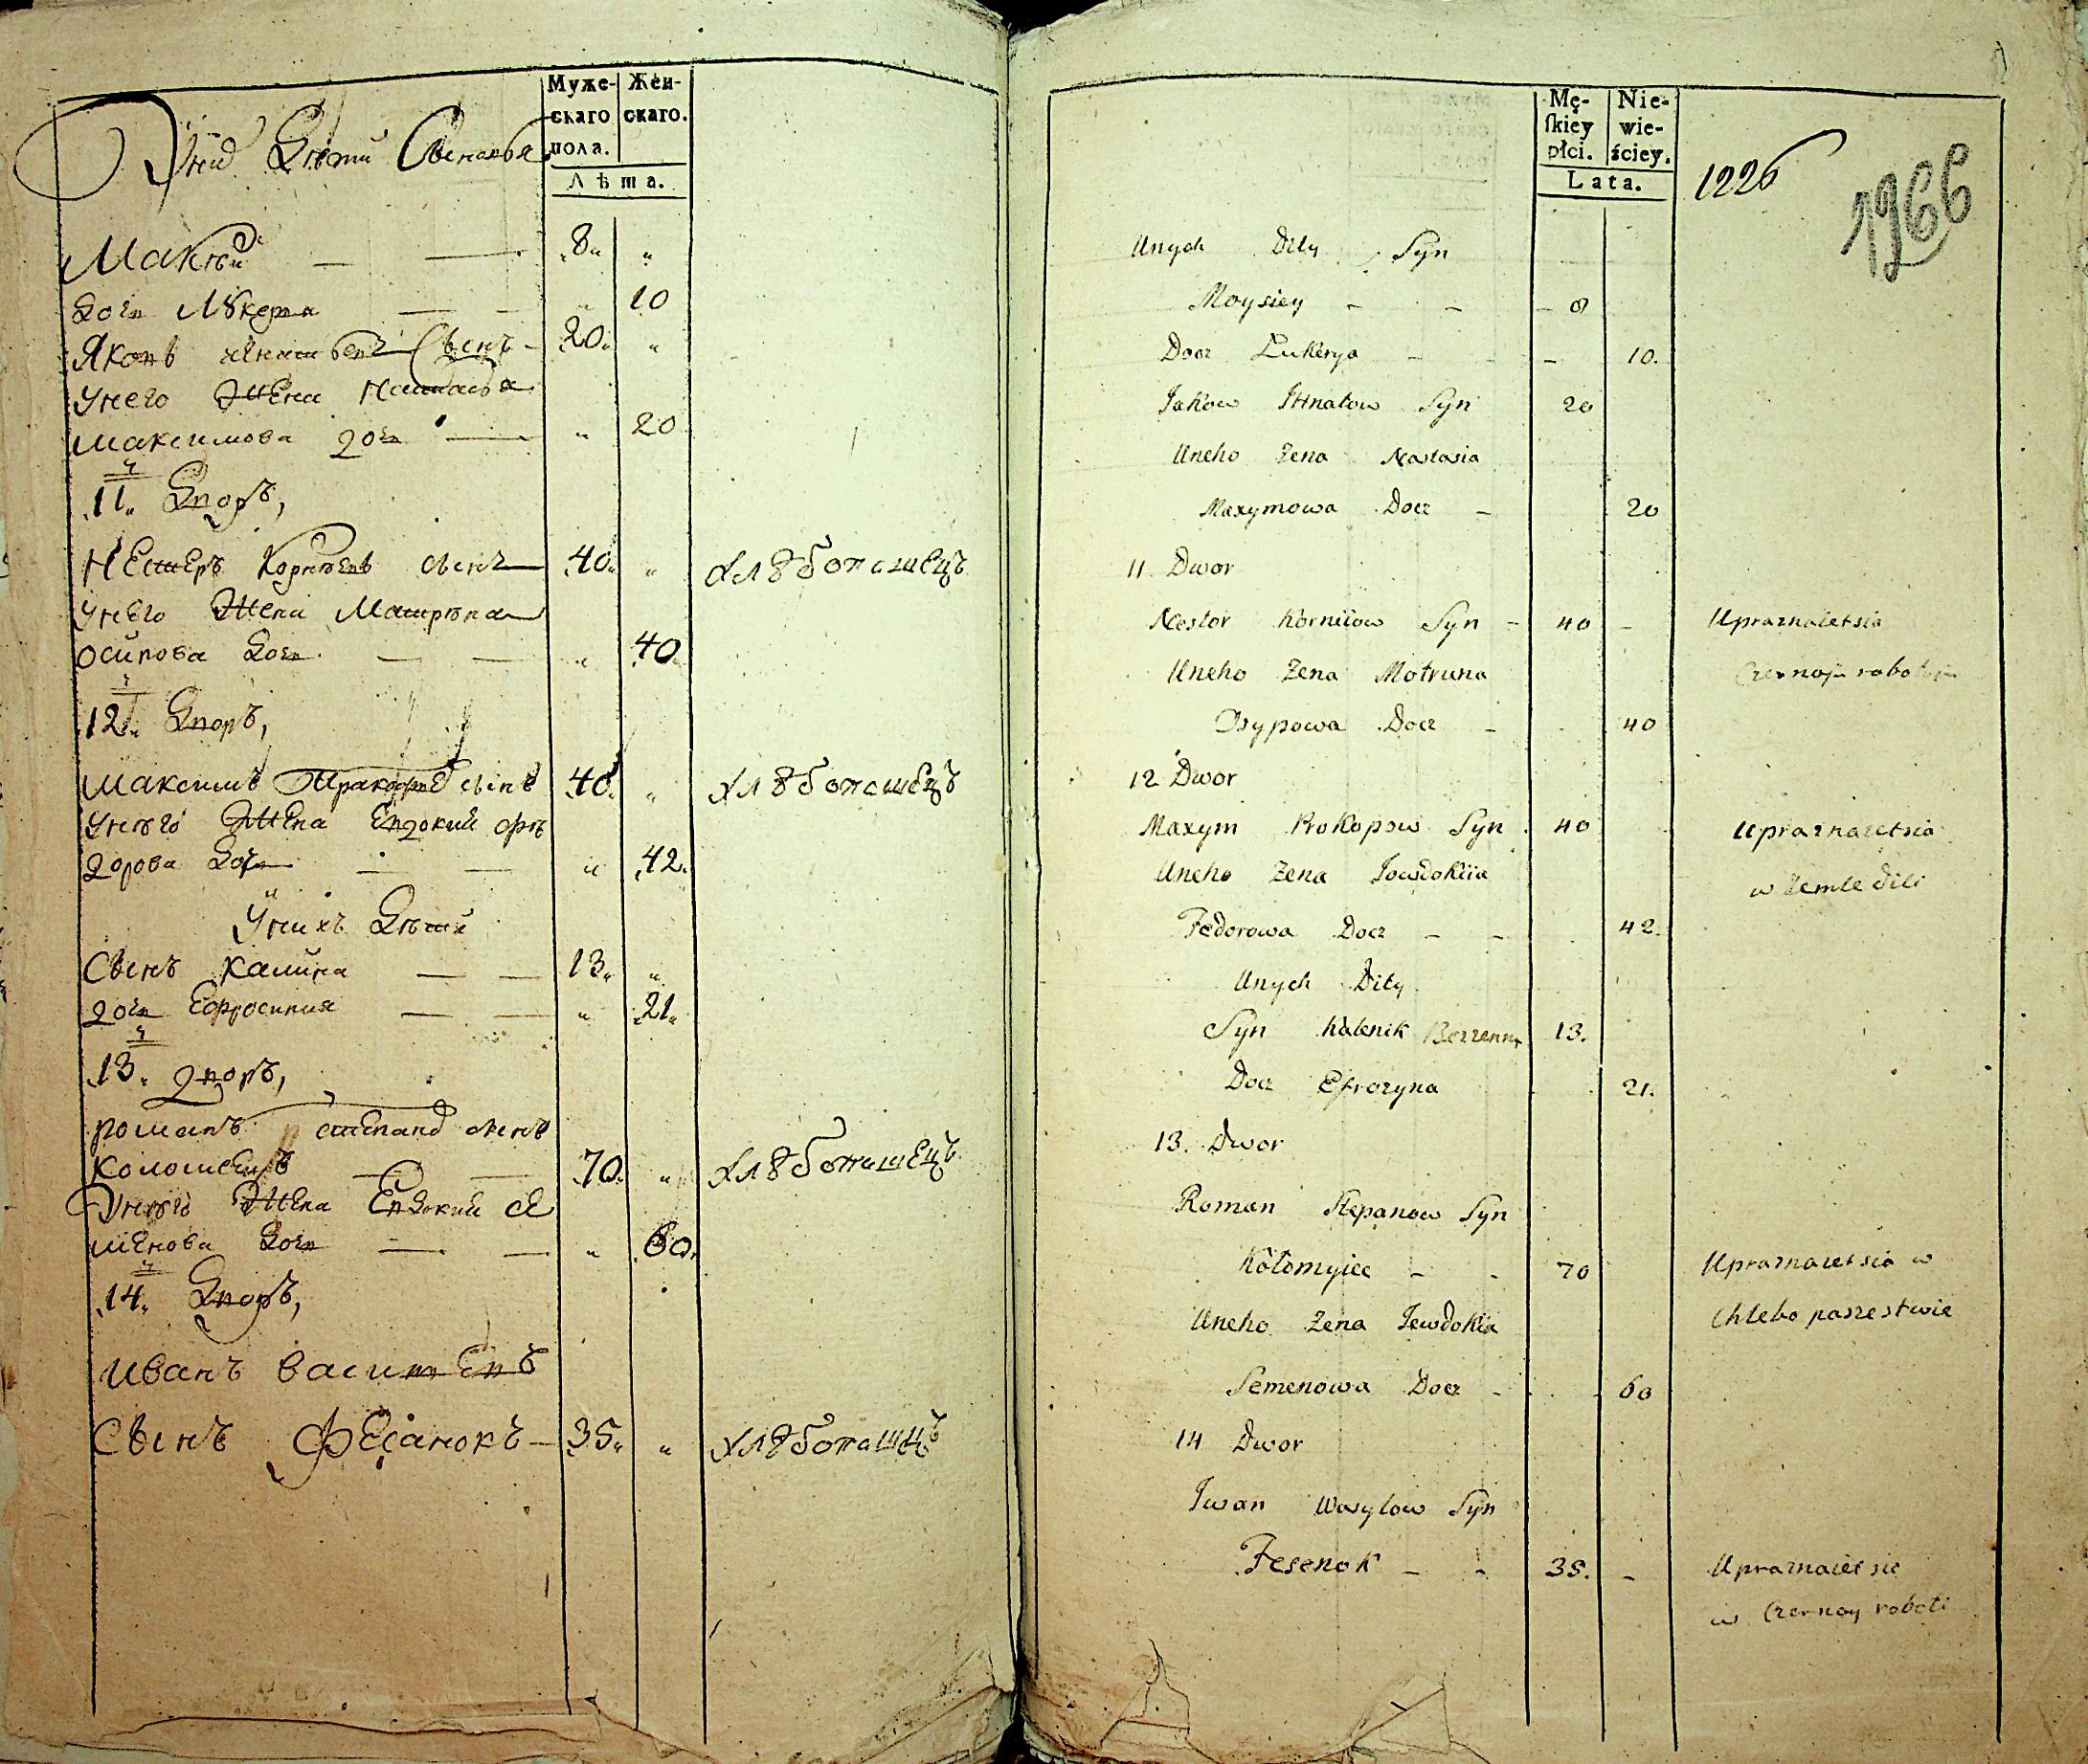 Муже-
скаго
пола.
Жен-
скаго.
Лѣта.
Дѣти
8
10
Яковъ сынъ 20
Унего Жена
Максимова дочь 20
11. Дворъ,
Нестеръ Корнѣевъ сынъ 40 хлѣбопашецъ
Унего Жена Матрѣна
Осипова дочь 40
12. Дворъ,
Максимъ сынъ 40 хлѣбопашецъ
Унего Жена Евдокия Фѣ
дорова дочь 42
Унихъ Дѣти
Сынъ Калина 13
дочь Ефросиния 21
13. дворъ,
Романъ сынъ
70 хлѣбопашецъ
Унего Жена Евдокия Се
менова дочь 60
14. Дворъ,
Иванъ
Сынъ Фесанокъ 35 хлѣбопашецъ
Mę-
skiey
płci.
Nie-
wie-
ściey.
Lata.
1226
1966
Unych Dity Syn
Moysiey - - 8
Docz Lukerya - - 10.
Jakow Ihnatow Syn 20
Uneho Zena Nastasia
Maxymowa Docz - 20
11 Dwor
Nestor Korniiow Syn - 40 - Upraznaietsia
Uneho Zena Motruna Czernoju robotoju
Osypowa Docz - 40
12 Dwor
Maxym Prokopow Syn 40 Upraznaietsia
Uneho Zena Jowdokiia w Zemle dili
Fedorowa Docz - - 42.
Unych Dity
Syn Kalenik 13.
Docz Efrozyna 21.
13. Dwor
Roman Stepanow Syn
Kołomyiec - - 70 Upraznaietsia w
Uneho Zena Jewdokia Chlebo paszestwie
Semenowa Docz - 60
14 Dwor
Iwan Wasylow Syn
Fesenok - - 35. - Upraznaietsie
w Czernoy roboti